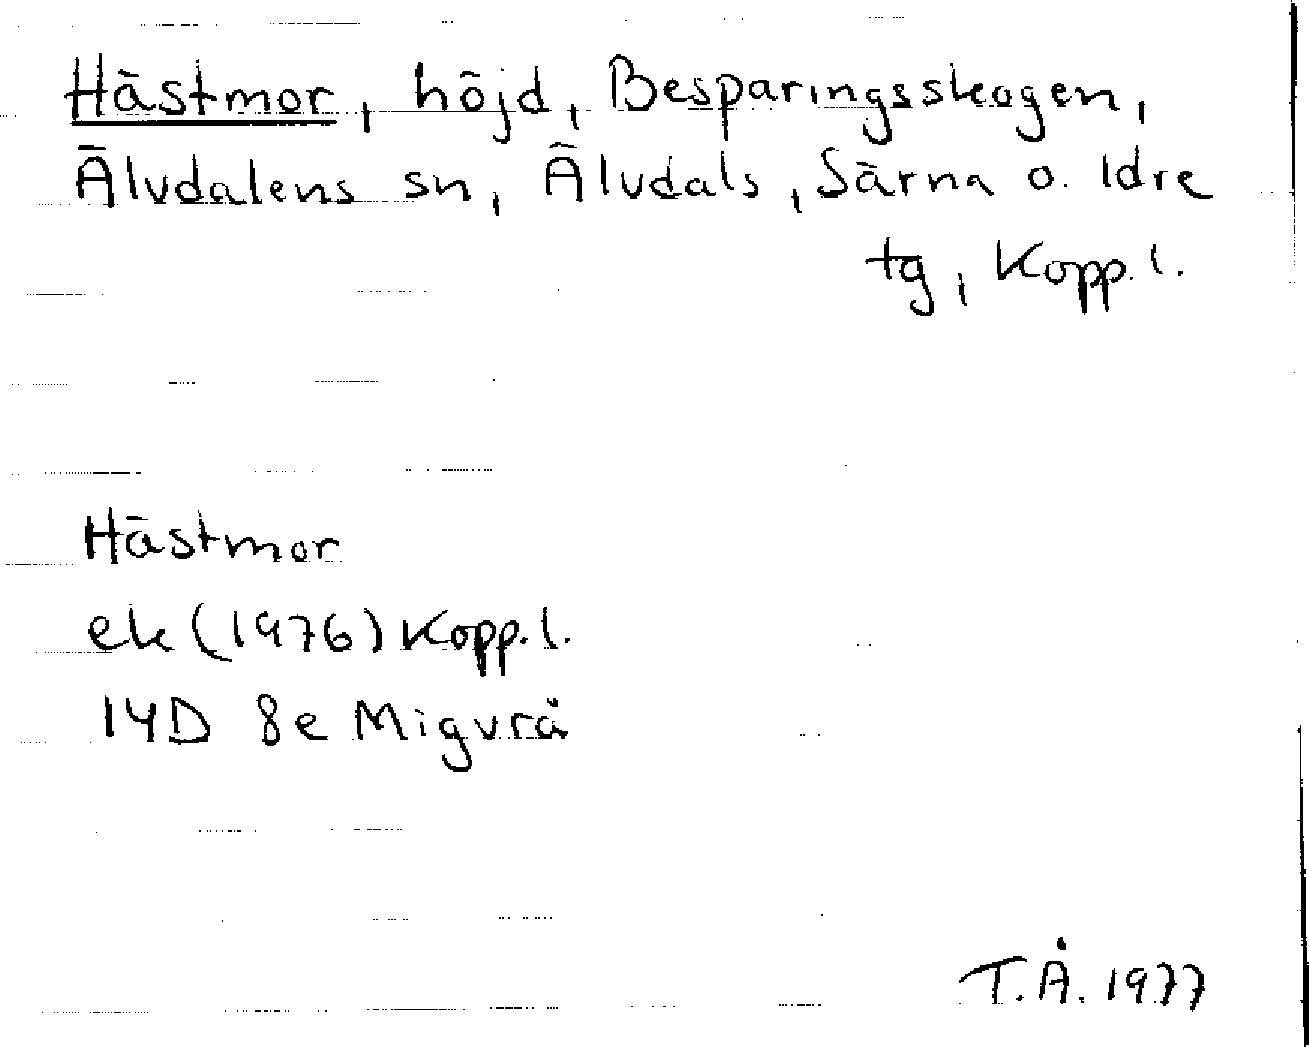 Hästmor, höjd, Besparingsskogen,
Älvdalens sn, Älvdals, Särna o. Idre
tg, Kopp. l.
Hästmor
ek (1976) Kopp. l.
14D 8e Migvrå
T.Å. 1977